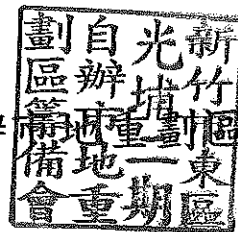 新竹東區
光埔二期
自辦市地重
劃區籌備會